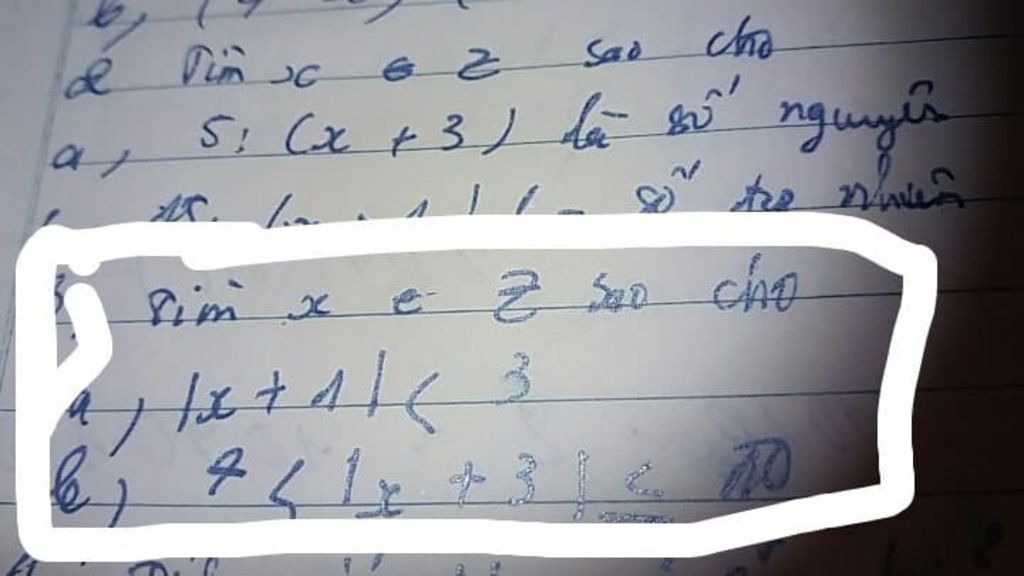 b, (
2 Tìm x ∈ Z sao cho
a, 5 : (x + 3) là số nguyên
số tự nhiên
3, Tìm x ∈ Z sao cho
a, |x + 1| < 3
b, 4 < |x + 3| ≤ 10